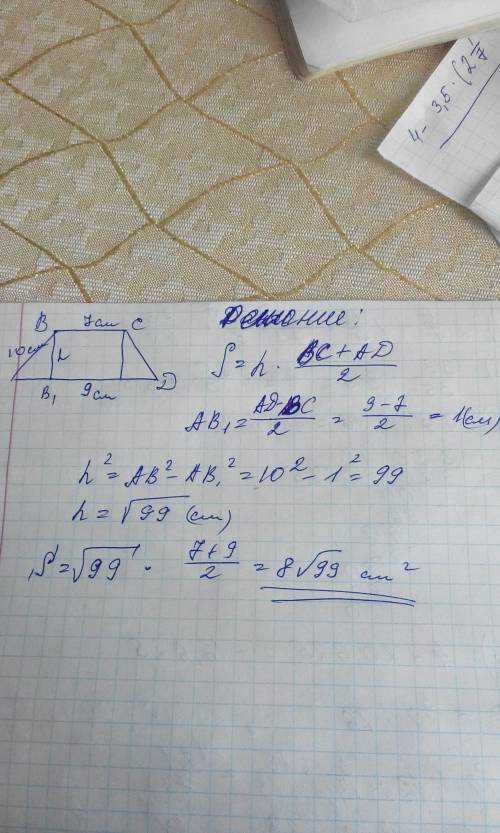 4 - 3,5 · (2 1/7
B 7см C
10см
h
B₁ 9см D
Решение:
S = h · (BC + AD)/2
AB₁ = (AD - BC)/2 = (9 - 7)/2 = 1(см)
h² = AB² - AB₁² = 10² - 1² = 99
h = √99 (см)
S = √99 · (7 + 9)/2 = 8√99 см²